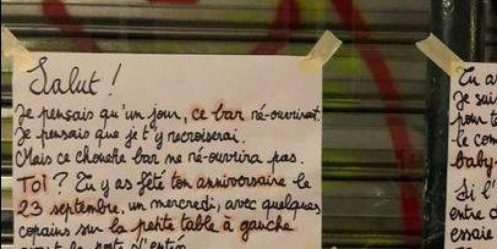 Salut !
Je pensais qu'un jour, ce bar ré-ouvrirait.
Je pensais que je t'y recroiserai.
Mais ce chouette bar ne ré-ouvrira pas.
Toi ? Tu y as fêté ton anniversaire le
23 septembre, un mercredi, avec quelques
copains sur la petite table à gauche
Tu a
Je sui
pour t
le com
baby
Si l'
entre
essaie